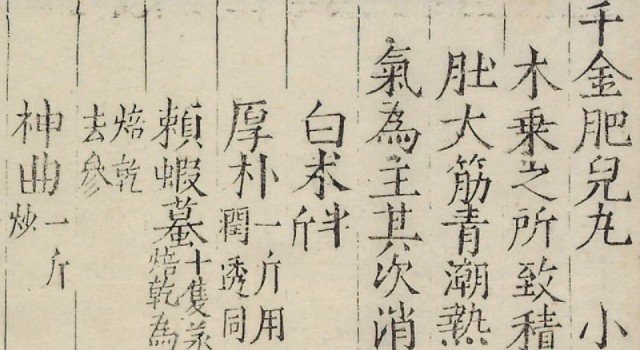 千金肥兒丸 小
木乗之所致積
肚大筋青潮熱
氣為主其次消
白术半斤
厚朴一斤用
潤透同
賴蝦蟇十隻蒸
焙乾為
焙乾
去參
神曲一斤
炒